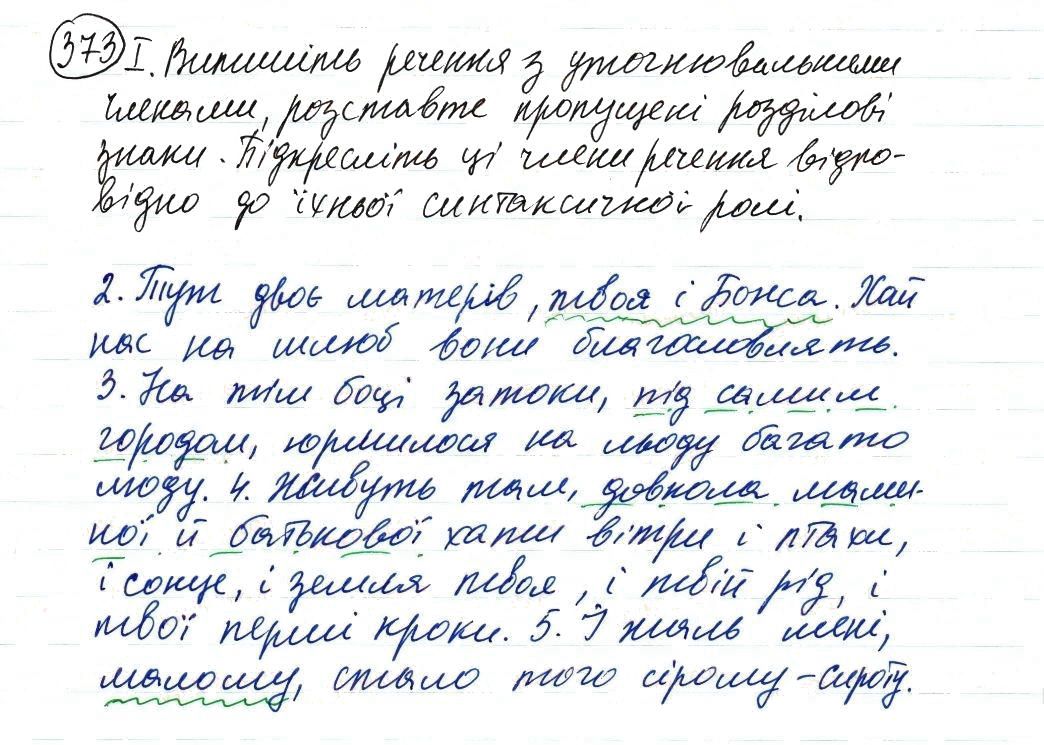 373 I. Випишіть речення з уточнювальними
членами, розставте пропущені розділові
знаки. Підкресліть ці члени речення відпо-
відно до їхньої синтаксичної ролі.
2. Тут двоє матерів, твоя і Божа. Хай
нас на шлюб вони благословлять.
3. На тім боці затоки, під самим
городом, юрмилося на льоду багато
люду. 4. Живуть там, довкола мами-
ної й батькової хати вітри і птахи,
і сонце, і земля твоя, і твій рід, і
твої перші кроки. 5. І жаль мені,
малому, стало того сірому-сироту.